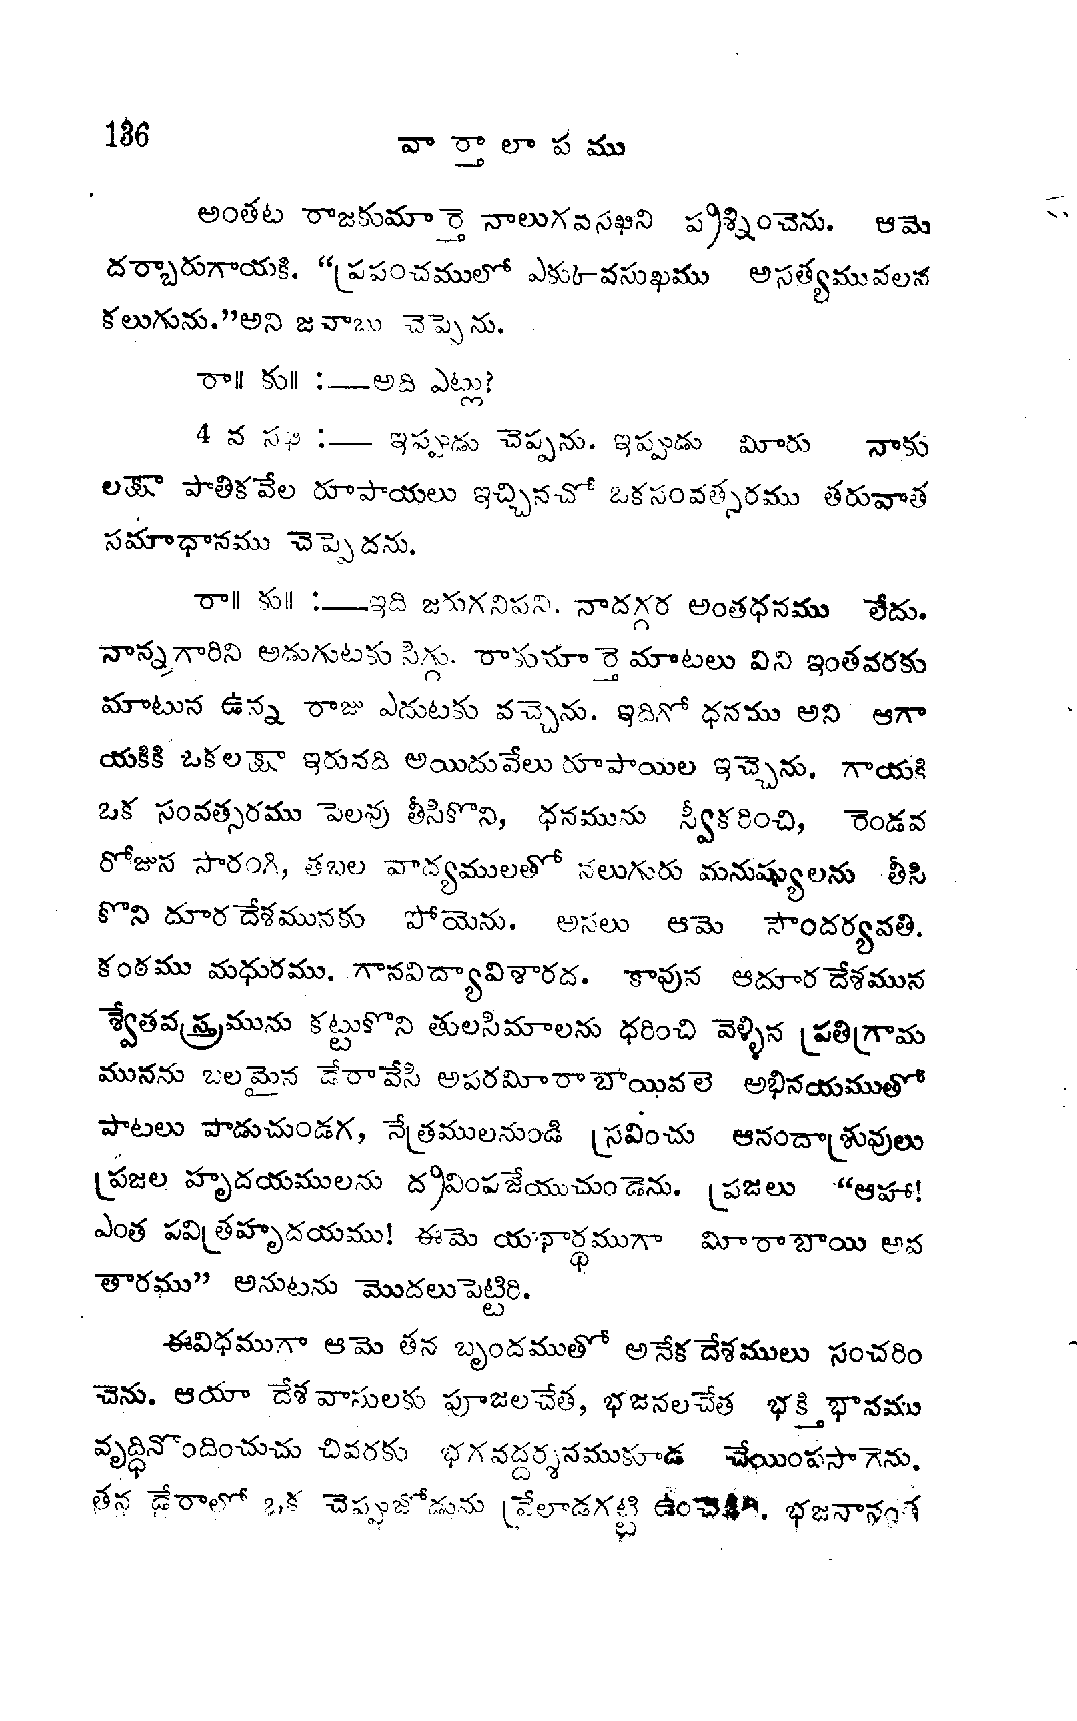 136
వార్తాలాపము
అంతట రాజకుమార్తె నాలుగవసఖిని ప్రశ్నించెను. ఆమె
దర్బారుగాయకి. “ప్రపంచములో ఎక్కువసుఖము అసత్యమువలన
కలుగును.”అని జవాబు చెప్పెను.
రా॥ కు॥ :—అది ఎట్లు?
4 వ సఖి :— ఇప్పుడు చెప్పను. ఇప్పుడు మీరు నాకు
లక్షా పాతికవేల రూపాయలు ఇచ్చినచో ఒకసంవత్సరము తరువాత
సమాధానము చెప్పెదను.
రా॥ కు॥ :—ఇది జరుగనిపని. నాదగ్గర అంతధనము లేదు.
నాన్నగారిని అడుగుటకు సిగ్గు. రాకుమార్తె మాటలు విని ఇంతవరకు
మాటున ఉన్న రాజు ఎదుటకు వచ్చెను. ఇదిగో ధనము అని ఆగా
యకికి ఒకలక్షా ఇరునది అయిదువేలు రూపాయిల ఇచ్చెను. గాయకి
ఒక సంవత్సరము సెలవు తీసికొని, ధనమును స్వీకరించి, రెండవ
రోజున సారంగి, తబల వాద్యములతో నలుగురు మనుష్యులను తీసి
కొని దూరదేశమునకు పోయెను. అసలు ఆమె సౌందర్యవతి.
కంఠము మధురము. గానవిద్యావిశారద. కావున ఆదూరదేశమున
శ్వేతవస్త్రమును కట్టుకొని తులసిమాలను ధరించి వెళ్ళిన ప్రతిగ్రామ
మునను బలమైన డేరావేసి అపరమీరాబాయివలె అభినయముతో
పాటలు పాడుచుండగ, నేత్రములనుండి స్రవించు ఆనందాశ్రువులు
ప్రజల హృదయములను ద్రవింపజేయుచుండెను. ప్రజలు “ఆహా!
ఎంత పవిత్రహృదయము! ఈమె యథార్థముగా మీరాబాయి అవ
తారము” అనుటను మొదలుపెట్టిరి.
ఈవిధముగా ఆమె తన బృందముతో అనేకదేశములు సంచరిం
చెను. ఆయా దేశవాసులకు పూజలచేత, భజనలచేత భక్తిభావము
వృద్ధినొందించుచు చివరకు భగవద్దర్శనముకూడ చేయింపసాగెను.
తన డేరాలో ఒక చెప్పుజోడును వ్రేలాడగట్టి భజనానంత